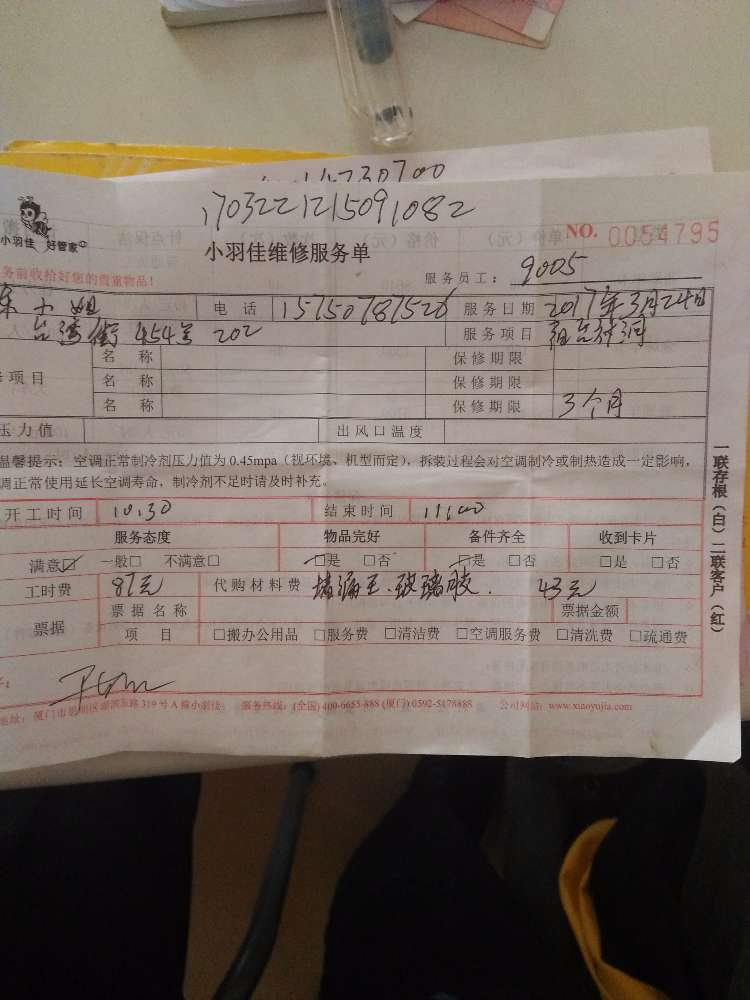 14730700
1703221215091082
小羽佳 好管家
小羽佳维修服务单
NO. 0054795
务前收拾好您的贵重物品!
服务员工: 9005
小姐 电话 15750787526 服务日期 2017年3月24日
台湾街 454号 202 服务项目
名称 保修期限
项目 名称 保修期限
名称 保修期限 3个月
压力值 出风口温度
温馨提示:空调正常制冷剂压力值为0.45mpa(视环境、机型而定),拆装过程会对空调制冷或制热造成一定影响,
调正常使用延长空调寿命,制冷剂不足时请及时补充。
开工时间 10:30 结束时间 11:00
服务态度 物品完好 备件齐全 收到卡片
满意☑ 一般□ 不满意□ ☑是 □否 ☑是 □否 □是 □否
工时费 87元 代购材料费 堵漏王、玻璃胶. 43元
票据 票据名称 票据金额
项目 □搬办公用品 □服务费 □清洁费 □空调服务费 □清洗费 □疏通费
地址:厦门市思明区湖滨东路319号A幢小羽佳 服务热线:(全国)400-6655-888 (厦门) 0592-5178888 公司网站:www.xiaoyujia.com
一联存根(白)二联客户(红)